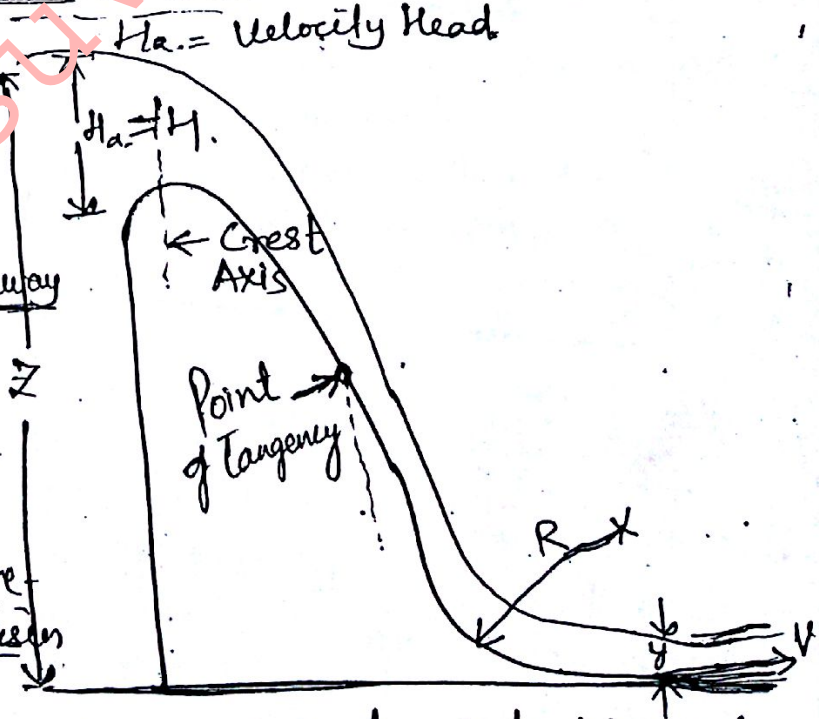 Ha.= Velocity Head.
Ha.= H.
← Crest
Axis
way
Z
Point
of Tangency
R
y
V